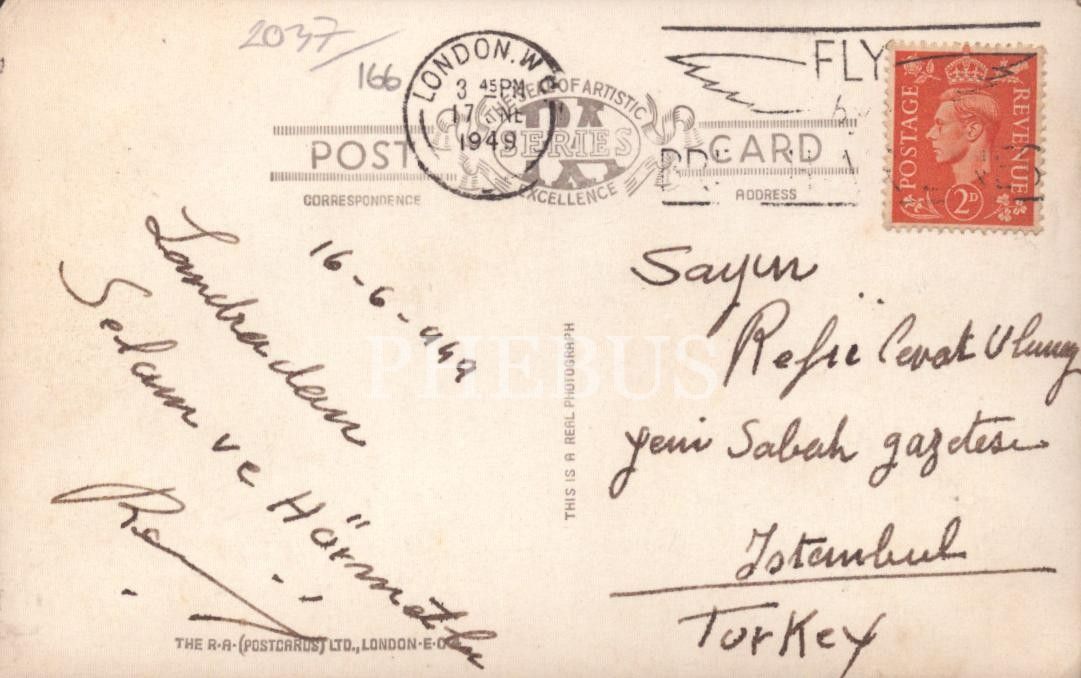 2037/
166
LONDON. W.C.
3 45 PM
17 JNE
1949
FLY
THE SEAL OF ARTISTIC
SERIES
EXCELLENCE
POST CARD
CORRESPONDENCE
ADDRESS
POSTAGE REVENUE
2D
16-6-949
Londradan
Selam ve Hörmetler
THIS IS A REAL PHOTOGRAPH
PHEBUS
Sayın
Refii Cevat Ulunay
yeni Sabah gazetesi
Istambul
Turkey
THE R·A·(POSTCARDS) LTD., LONDON·E·C·4